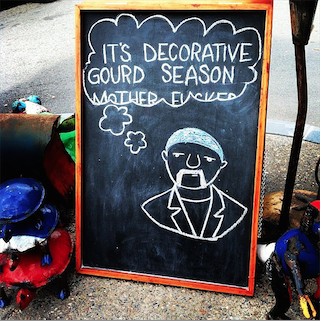 IT'S DECORATIVE
GOURD SEASON
MOTHER FUCKER